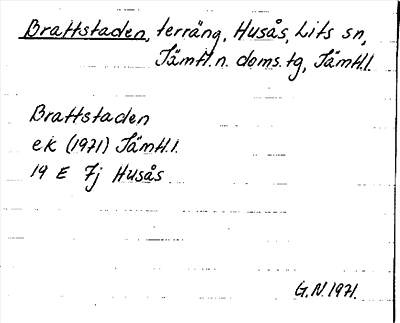 Brattstaden, terräng, Husås, Lits sn,
Jämtl. n. doms. tg, Jämtl. l.
Brattstaden
ek (1971) Jämtl. l.
19 E 7j Husås
G.N. 1971.